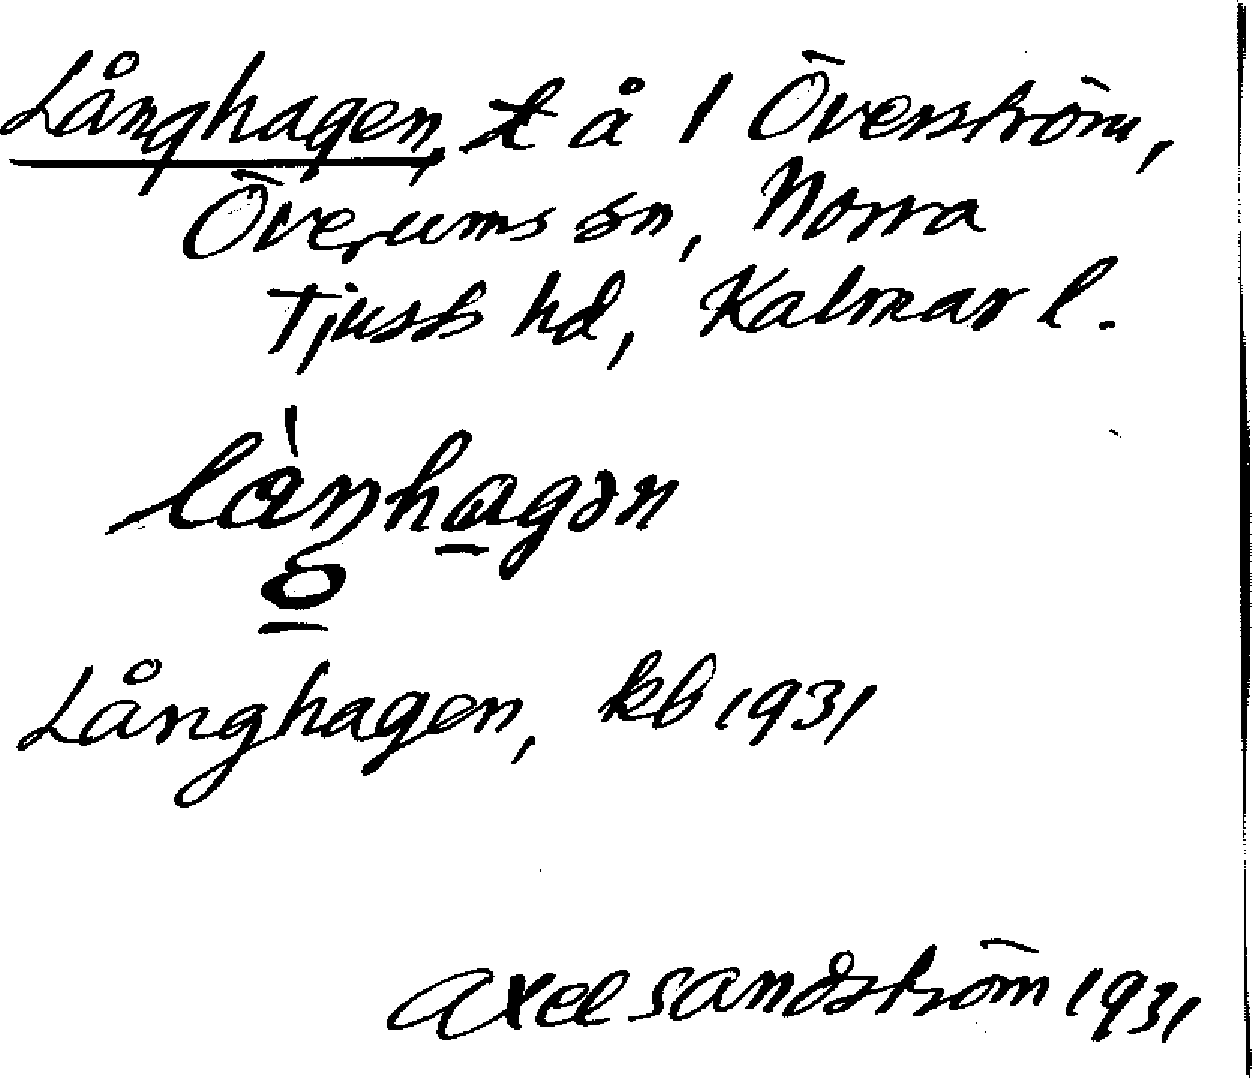 Långhagen, t å 1 Överström,
Överums sn, Norra
Tjusts hd, Kalmar l.
làŋhagən
Långhagen, kb 1931
Axel Sandström 1931